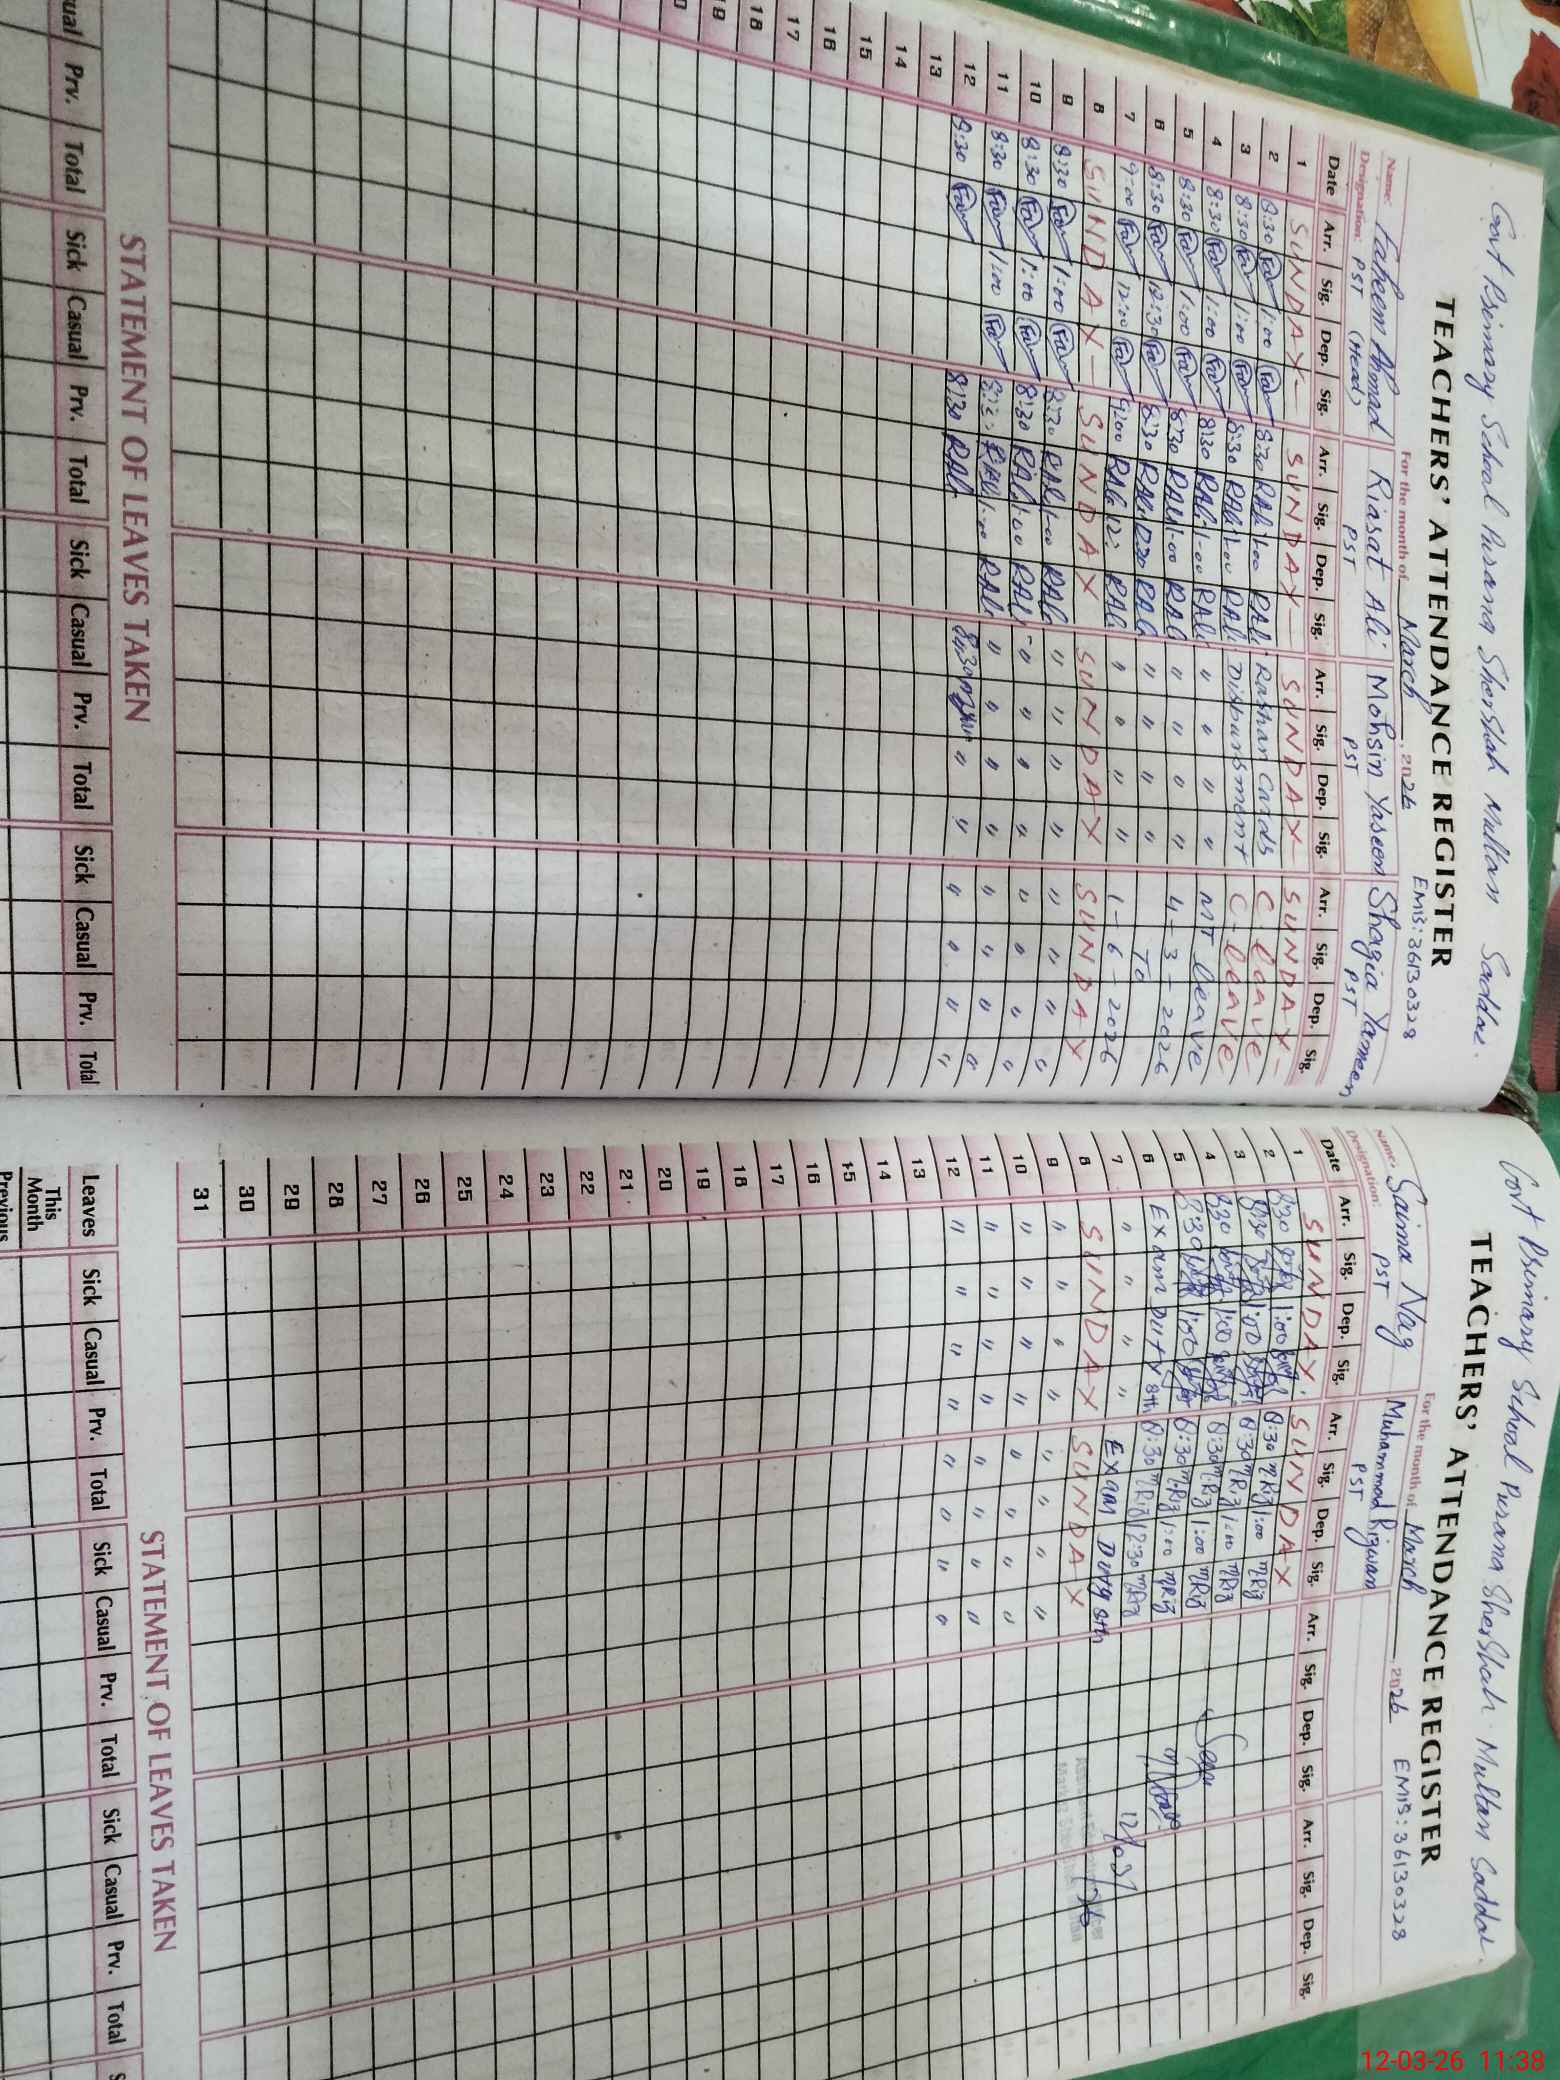 Govt Primary School Purana Shershah Multan Saddar.
TEACHERS' ATTENDANCE REGISTER
EMIS: 36130328
For the month of March, 2026
Name: Faheem Ahmad Riasat Ali Mohsin Yaseen Shagia Yameen
Designation: PST (Head) PST PST PST
Date Arr. Sig. Dep. Sig. Arr. Sig. Dep. Sig. Arr. Sig. Dep. Sig. Arr. Sig. Dep. Sig.
1 SUNDAY- SUNDAY- SUNDAY- SUNDAY-
2 8:30 Fa 1:00 Fa 8:30 RAli 1:00 RAli Rashan Cards C-leave
3 8:30 Fa 1:00 Fa 8:30 RAli 1:00 RAli Disbursment C-leave
4 8:30 Fa 1:00 Fa 8:30 RAli 1:00 RAli " " " " MT leave
5 8:30 Fa 1:00 Fa 8:30 RAli 1:00 RAli " " " " 4-3-2026
6 8:30 Fa 12:30 Fa 8:30 RAli 12:30 RAli " " " " To
7 9:00 Fa 12:00 Fa 9:00 RAli 12: RAli " " " " 1-6-2026
8 SUNDAY- SUNDAY SUNDAY SUNDAY
9 8:30 Fa 1:00 Fa 8:30 RAli 1:00 RAli " " " " " " " "
10 8:30 Fa 1:00 Fa 8:30 RAli 1:00 RAli " " " " " " " "
11 8:30 Fa 1:00 Fa 8:30 RAli 1:00 RAli " " " " " " " "
12 8:30 Fa 8:30 RAli 8:30 " " " " " "
13
14
15
16
17
18
19
STATEMENT OF LEAVES TAKEN
Prv. Total Sick Casual Prv. Total Sick Casual Prv. Total Sick Casual Prv. Total
Govt Primary School Purana Shershah Multan Saddar.
TEACHERS' ATTENDANCE REGISTER
For the month of March, 2026 EMIS: 36130328
Name: Saima Naz Muhammad Rizwan
Designation: PST PST
Date Arr. Sig. Dep. Sig. Arr. Sig. Dep. Sig. Arr. Sig. Dep. Sig. Arr. Sig. Dep. Sig.
1 SUNDAY. SUNDAY
2 8:30 1:00 8:30 MRiz 1:00 MRiz
3 8:30 1:00 8:30 MRiz 1:00 MRiz
4 8:30 1:00 8:30 MRiz 1:00 MRiz
5 8:30 1:00 8:30 MRiz 1:00 MRiz
6 Exam Duty 8th 8:30 MRiz 12:30 MRiz
7 " " " " Exam Duty 8th
8 SUNDAY SUNDAY
9 " " " " " " " "
10 " " " " " " " "
11 " " " " " " " "
12 " " " " " " " "
13
14
15
16
17
18
19
20
21
22
23
24
25
26
27
28
29
30
31
STATEMENT OF LEAVES TAKEN
Leaves Sick Casual Prv. Total Sick Casual Prv. Total Sick Casual Prv. Total
This Month
Previous
12-03-26 11:38